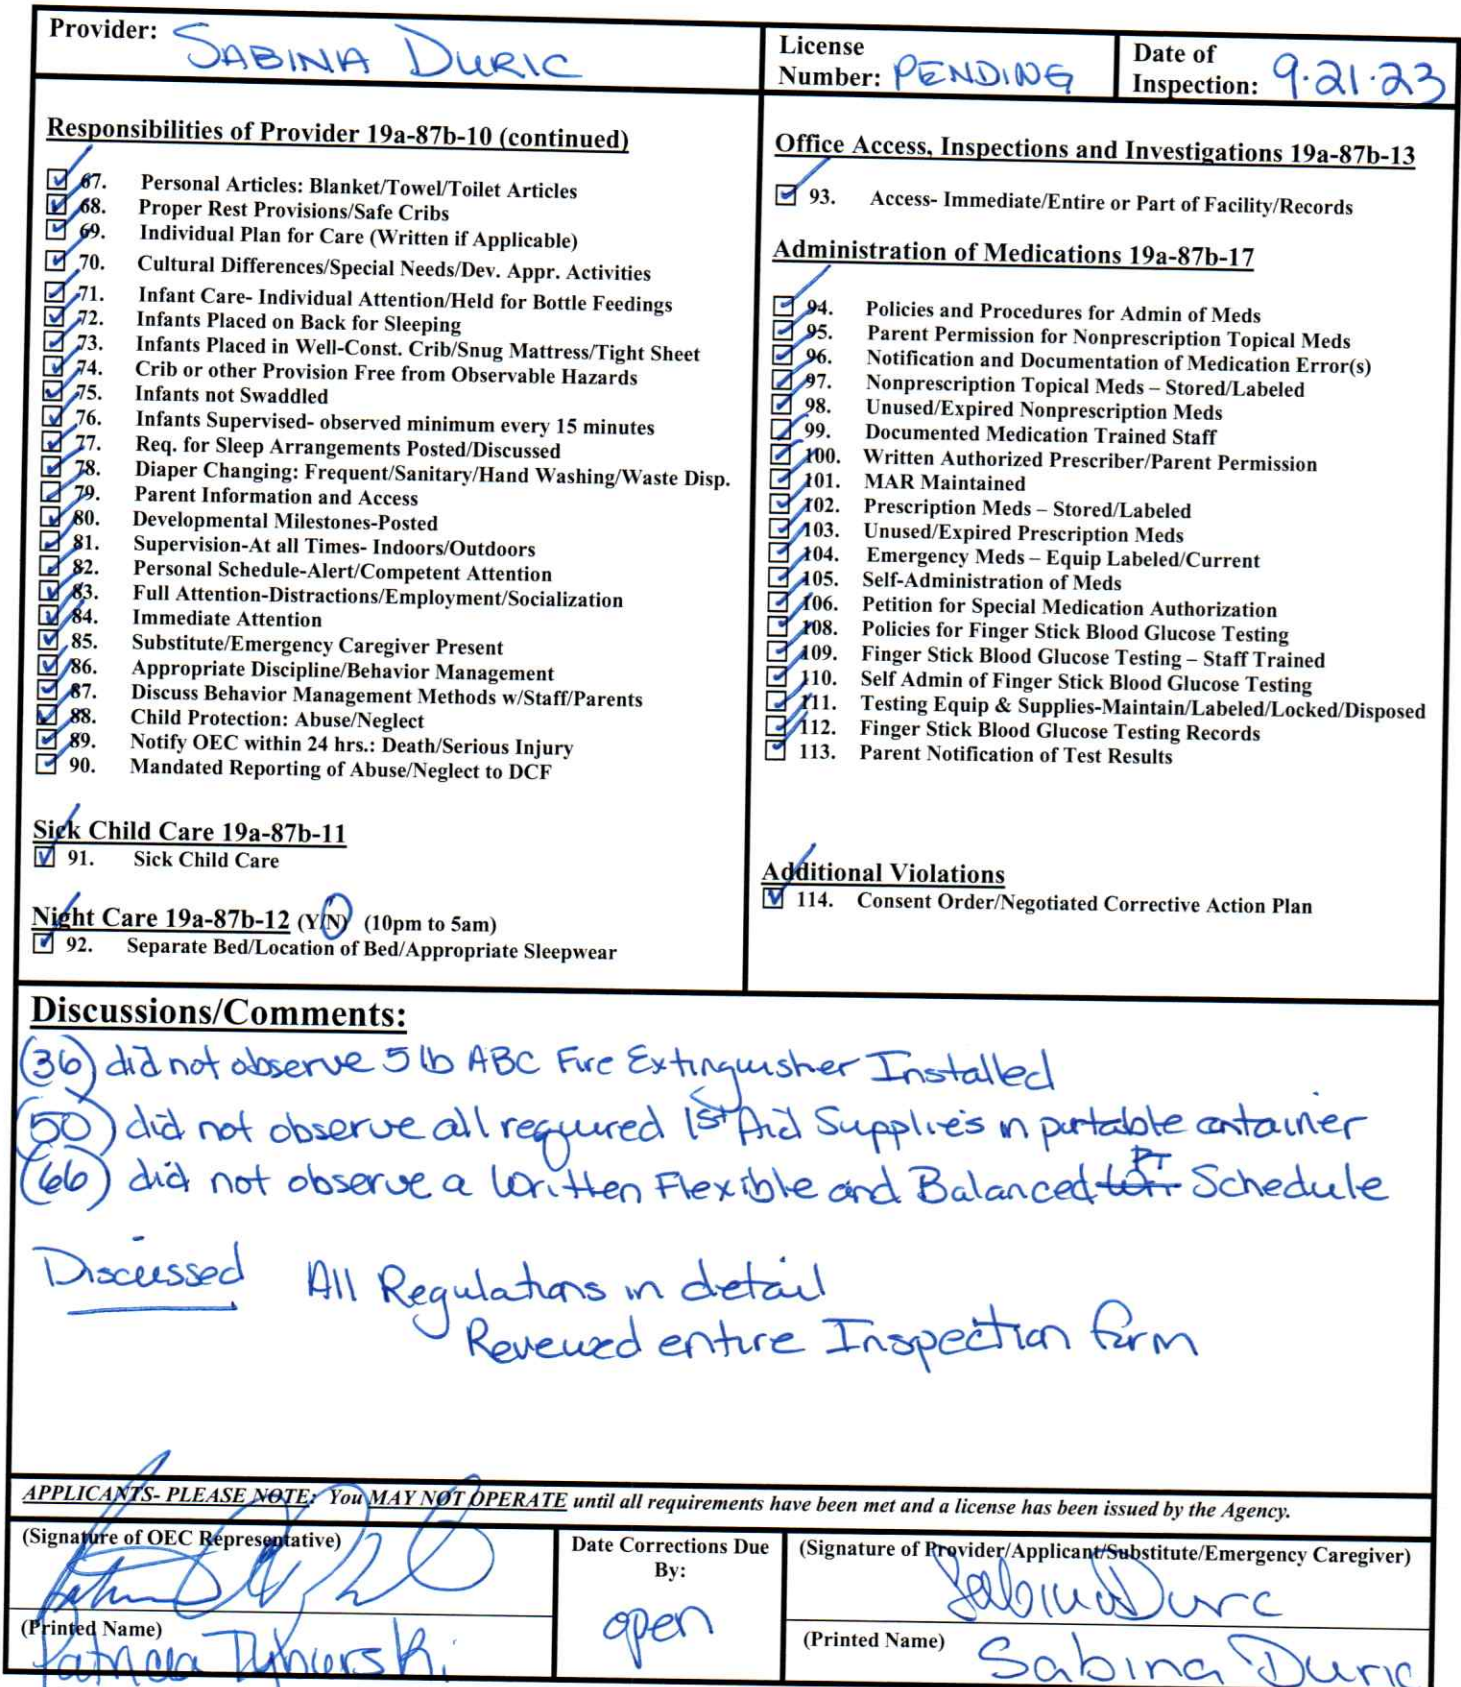 Provider: SABINA DURIC
License Number: PENDING
Date of Inspection: 9.21.23
Responsibilities of Provider 19a-87b-10 (continued)
67. Personal Articles: Blanket/Towel/Toilet Articles
68. Proper Rest Provisions/Safe Cribs
69. Individual Plan for Care (Written if Applicable)
70. Cultural Differences/Special Needs/Dev. Appr. Activities
71. Infant Care- Individual Attention/Held for Bottle Feedings
72. Infants Placed on Back for Sleeping
73. Infants Placed in Well-Const. Crib/Snug Mattress/Tight Sheet
74. Crib or other Provision Free from Observable Hazards
75. Infants not Swaddled
76. Infants Supervised- observed minimum every 15 minutes
77. Req. for Sleep Arrangements Posted/Discussed
78. Diaper Changing: Frequent/Sanitary/Hand Washing/Waste Disp.
79. Parent Information and Access
80. Developmental Milestones-Posted
81. Supervision-At all Times- Indoors/Outdoors
82. Personal Schedule-Alert/Competent Attention
83. Full Attention-Distractions/Employment/Socialization
84. Immediate Attention
85. Substitute/Emergency Caregiver Present
86. Appropriate Discipline/Behavior Management
87. Discuss Behavior Management Methods w/Staff/Parents
88. Child Protection: Abuse/Neglect
89. Notify OEC within 24 hrs.: Death/Serious Injury
90. Mandated Reporting of Abuse/Neglect to DCF
Sick Child Care 19a-87b-11
91. Sick Child Care
Night Care 19a-87b-12 (Y/N) (10pm to 5am)
92. Separate Bed/Location of Bed/Appropriate Sleepwear
Office Access, Inspections and Investigations 19a-87b-13
93. Access- Immediate/Entire or Part of Facility/Records
Administration of Medications 19a-87b-17
94. Policies and Procedures for Admin of Meds
95. Parent Permission for Nonprescription Topical Meds
96. Notification and Documentation of Medication Error(s)
97. Nonprescription Topical Meds – Stored/Labeled
98. Unused/Expired Nonprescription Meds
99. Documented Medication Trained Staff
100. Written Authorized Prescriber/Parent Permission
101. MAR Maintained
102. Prescription Meds – Stored/Labeled
103. Unused/Expired Prescription Meds
104. Emergency Meds – Equip Labeled/Current
105. Self-Administration of Meds
106. Petition for Special Medication Authorization
108. Policies for Finger Stick Blood Glucose Testing
109. Finger Stick Blood Glucose Testing – Staff Trained
110. Self Admin of Finger Stick Blood Glucose Testing
111. Testing Equip & Supplies-Maintain/Labeled/Locked/Disposed
112. Finger Stick Blood Glucose Testing Records
113. Parent Notification of Test Results
Additional Violations
114. Consent Order/Negotiated Corrective Action Plan
Discussions/Comments:
(36) did not observe 5 lb ABC Fire Extinguisher Installed
(50) did not observe all required 1st Aid Supplies in portable container
(66) did not observe a Written Flexible and Balanced PT Schedule
Discussed All Regulations in detail
Reviewed entire Inspection form
APPLICANTS- PLEASE NOTE: You MAY NOT OPERATE until all requirements have been met and a license has been issued by the Agency.
(Signature of OEC Representative)
(Printed Name)
Patricia
Date Corrections Due By:
open
(Signature of Provider/Applicant/Substitute/Emergency Caregiver)
Sabina Duric
(Printed Name) Sabina Duric